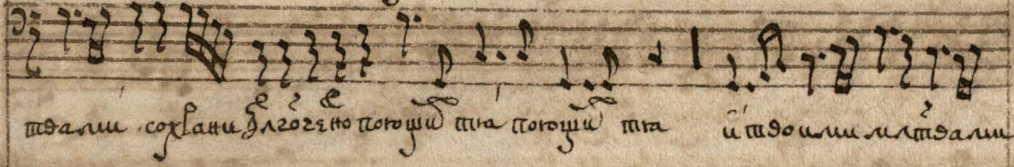 твами сохрани блгочено поющих тя поющих тя и твоими млтвами